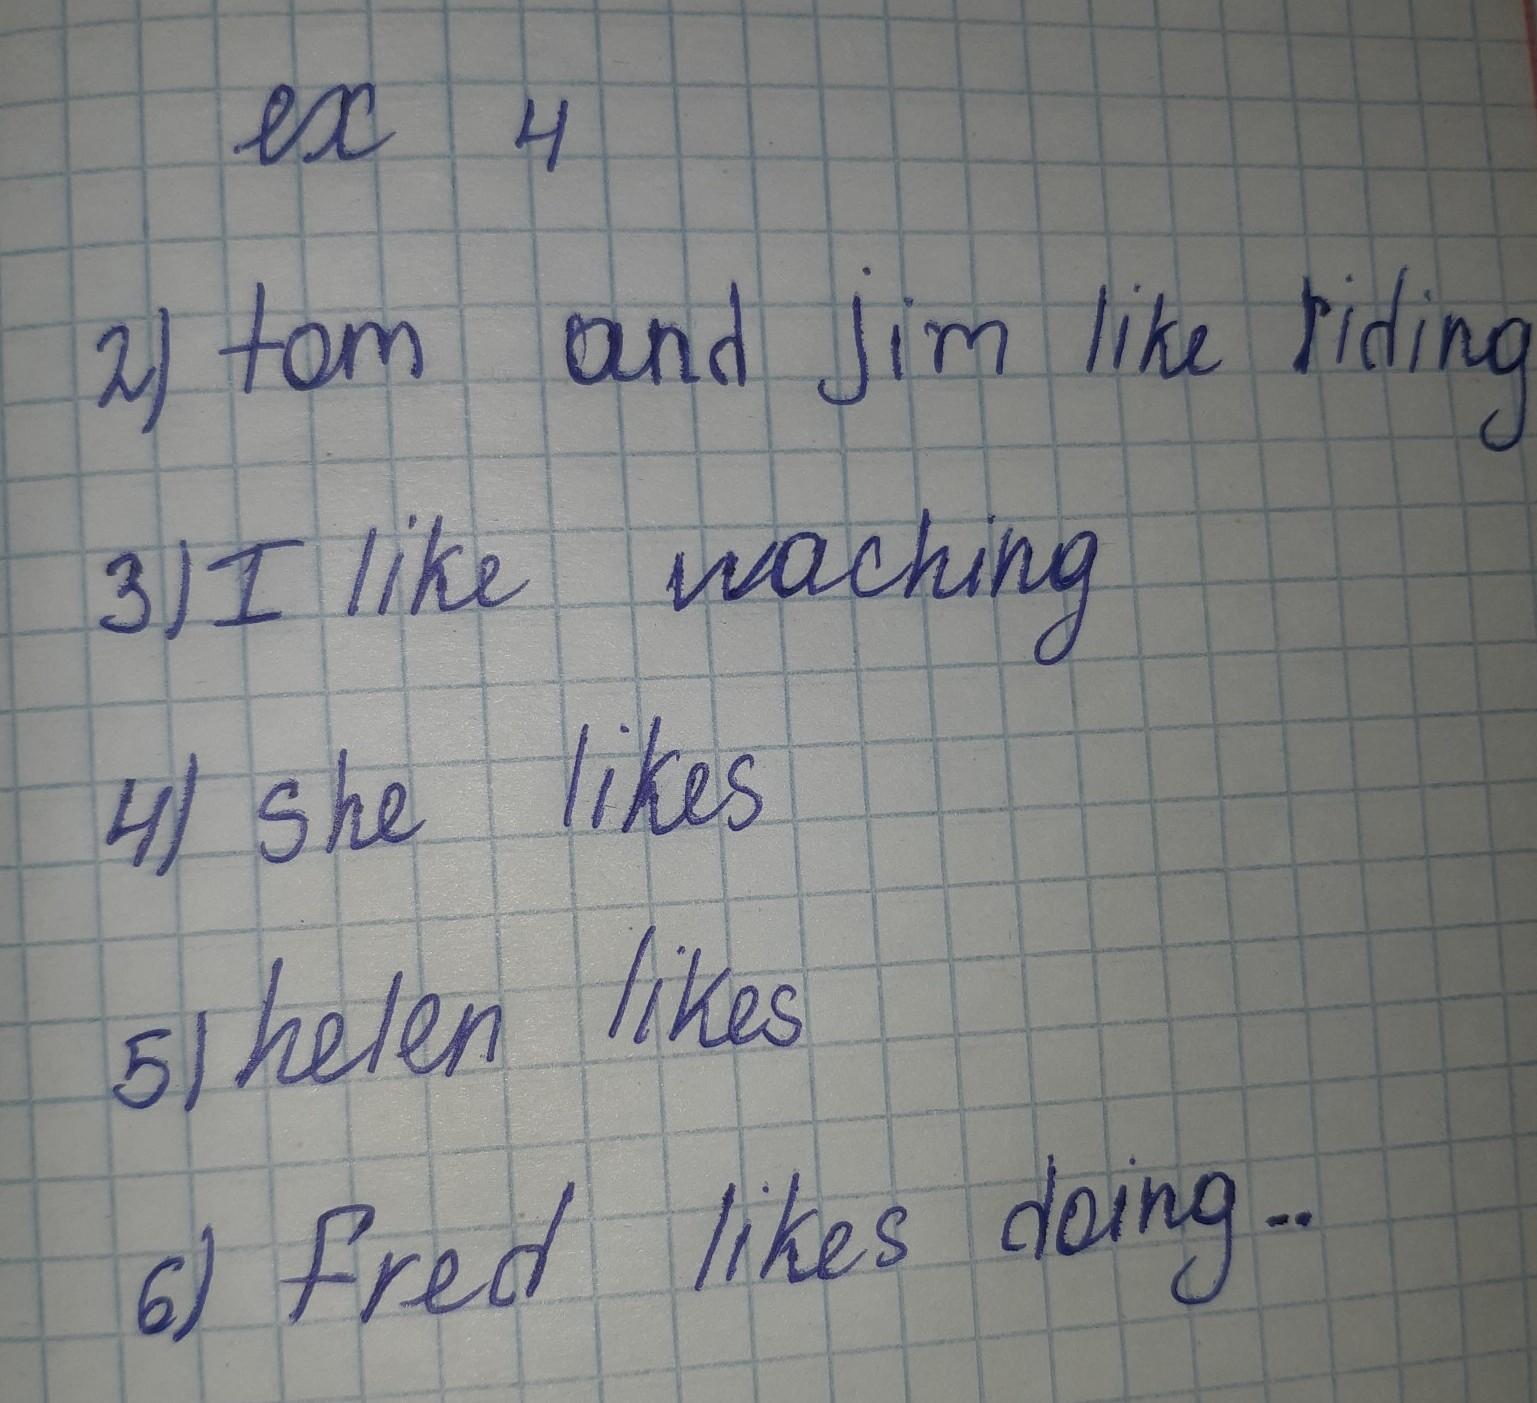 ex 4
2) tom and jim like riding
3) I like waching
4) she likes
5) helen likes
6) Fred likes doing..